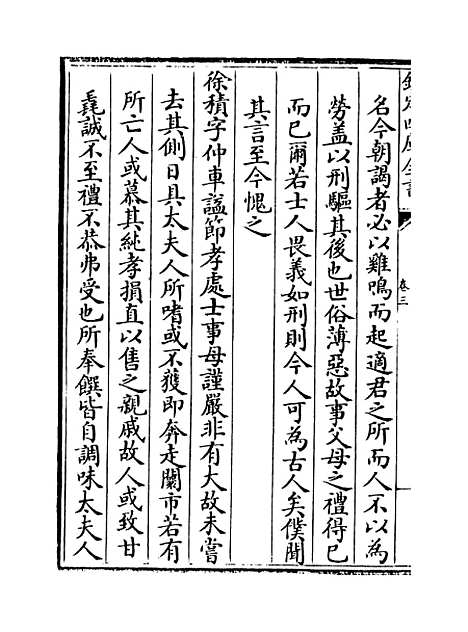 欽定四庫全書
卷三
名今朝謁者必以雞鳴而起適君之所而人不以為
勞盖以刑驅其後也世俗薄惡故事父母之禮得已
而已爾若士人畏義如刑則今人可為古人矣僕聞
其言至今愧之
徐積字仲車諡節孝處士事母謹嚴非有大故未嘗
去其側日具太夫人所嗜或不獲即奔走闤市若有
所亡人或慕其純孝損直以售之親戚故人或致甘
毳誠不至禮不恭弗受也所奉饌皆自調味太夫人